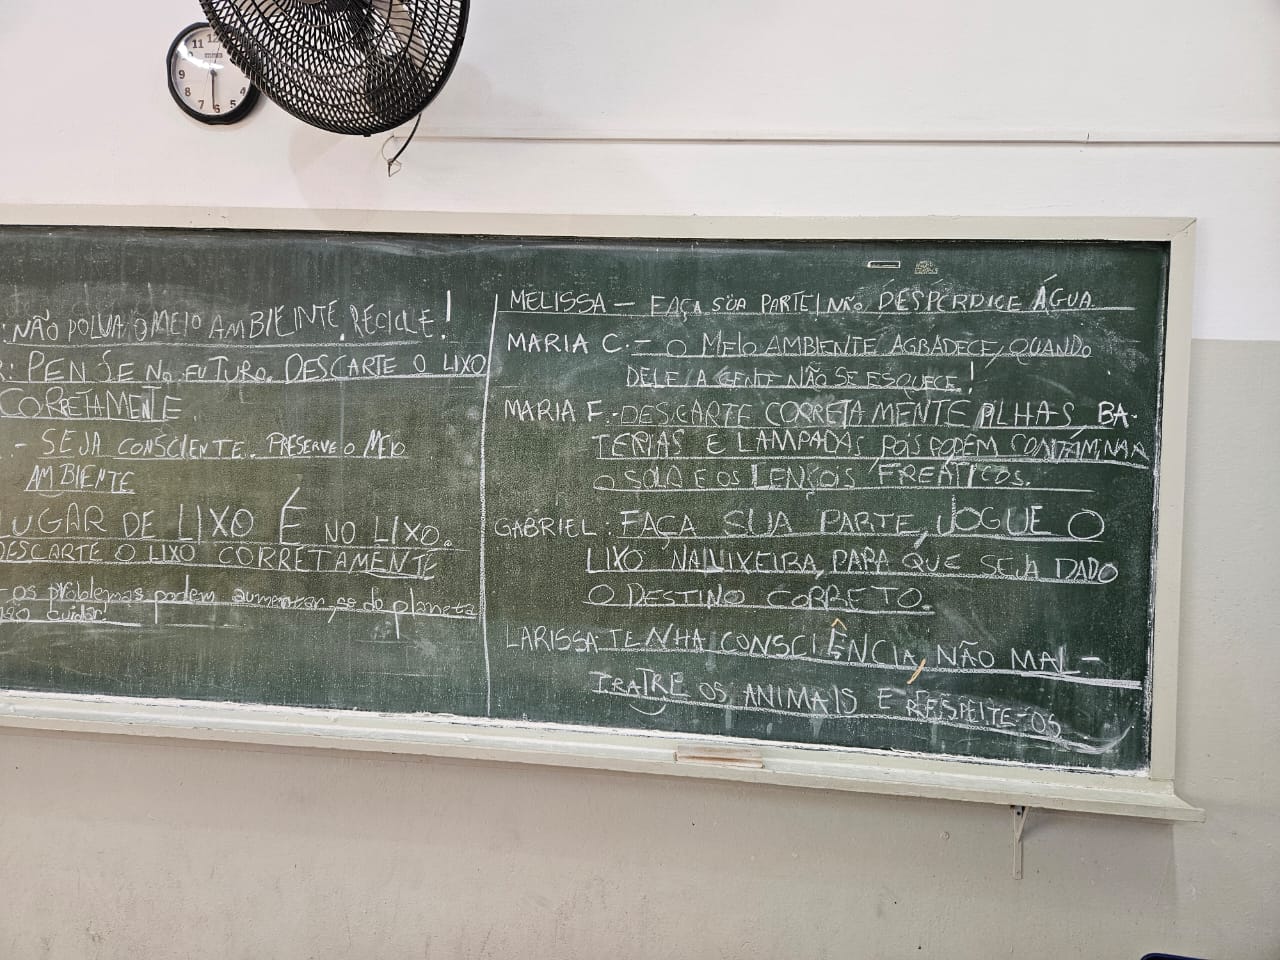 : NÃO POLUA O MEIO AMBIEINTE, RECICLE!
R: PENSE NO FUTURO. DESCARTE O LIXO
CORRETAMENTE.
. - SEJA CONSCIENTE. PRESERVE O MEIO
AMBIENTE
LUGAR DE LIXO É NO LIXO.
DESCARTE O LIXO CORRETAMENTE
- os problemas podem aumentar, se do planeta
não cuidar!
MELISSA - FAÇA SUA PARTE, NÃO DESPERDICE ÁGUA.
MARIA C. - O MEIO AMBIENTE AGRADECE, QUANDO
DELE A GENTE NÃO SE ESQUECE!
MARIA F. - DESCARTE CORRETAMENTE PILHAS BA-
TERIAS E LAMPADAS, POIS PODEM CONTAMINAR
O SOLO E OS LENÇOIS FREÁTICOS.
GABRIEL: FAÇA SUA PARTE, JOGUE O
LIXO NA LIXEIRA, PARA QUE SEJA DADO
O DESTINO CORRETO.
LARISSA: TENHA CONSCIÊNCIA, NÃO MAL-
TRATRE OS ANIMAIS E RESPEITE-OS
11 12
9
8 4
7 6 5